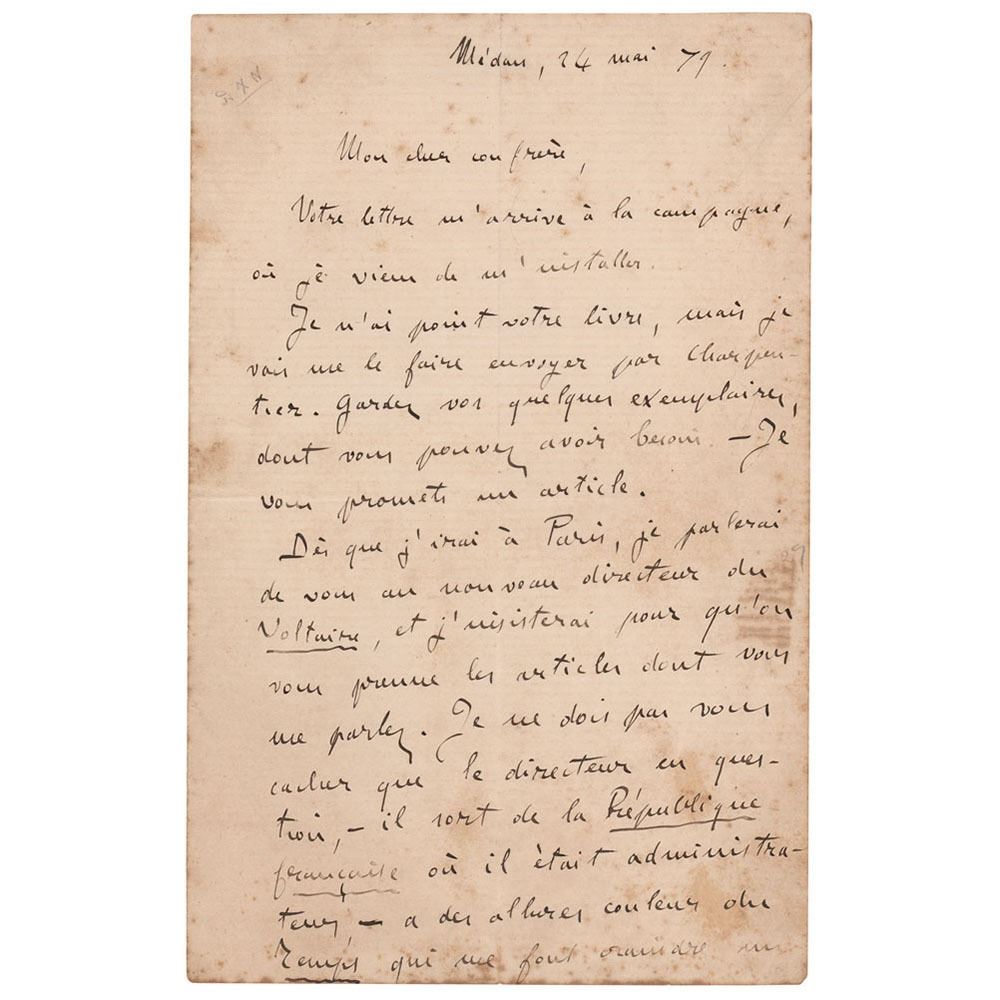 Médan, 24 mai 79.
Mon cher confrère,
Votre lettre m'arrive à la campagne,
où je viens de m'installer.
Je n'ai point votre livre, mais je
vais me le faire envoyer par Charpen-
tier. Gardez vos quelques exemplaires,
dont vous pouvez avoir besoin. – Je
vous promets un article.
Dès que j'irai à Paris, je parlerai
de vous au nouveau directeur du
Voltaire, et j'insisterai pour qu'on
vous prenne les articles dont vous
me parlez. Je ne dois pas vous
cacher que le directeur en ques-
tion, – il sort de la République
française où il était administra-
teur, – a des allures couleur du
Temps qui me font craindre un